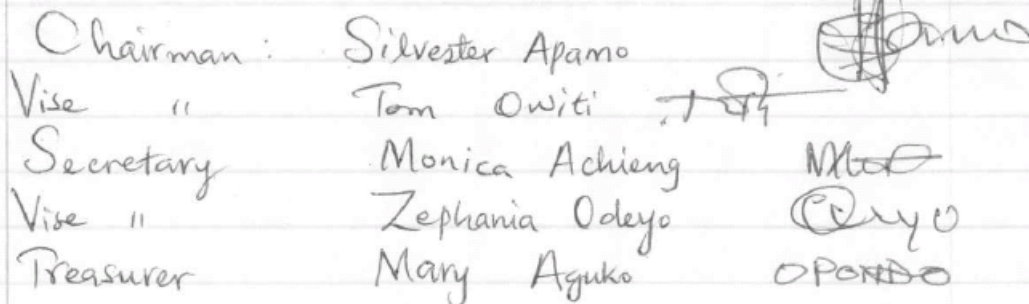 Chairman: Silvester Apamo
Vise " Tom Owiti
Secretary Monica Achieng
Vise " Zephania Odeyo
Treasurer Mary Aguko OPONDO